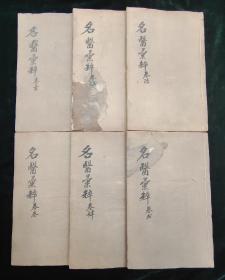 名醫彙粹卷
名醫彙粹卷
名醫彙粹卷
名醫彙粹卷
名醫彙粹卷肆
名醫彙粹卷